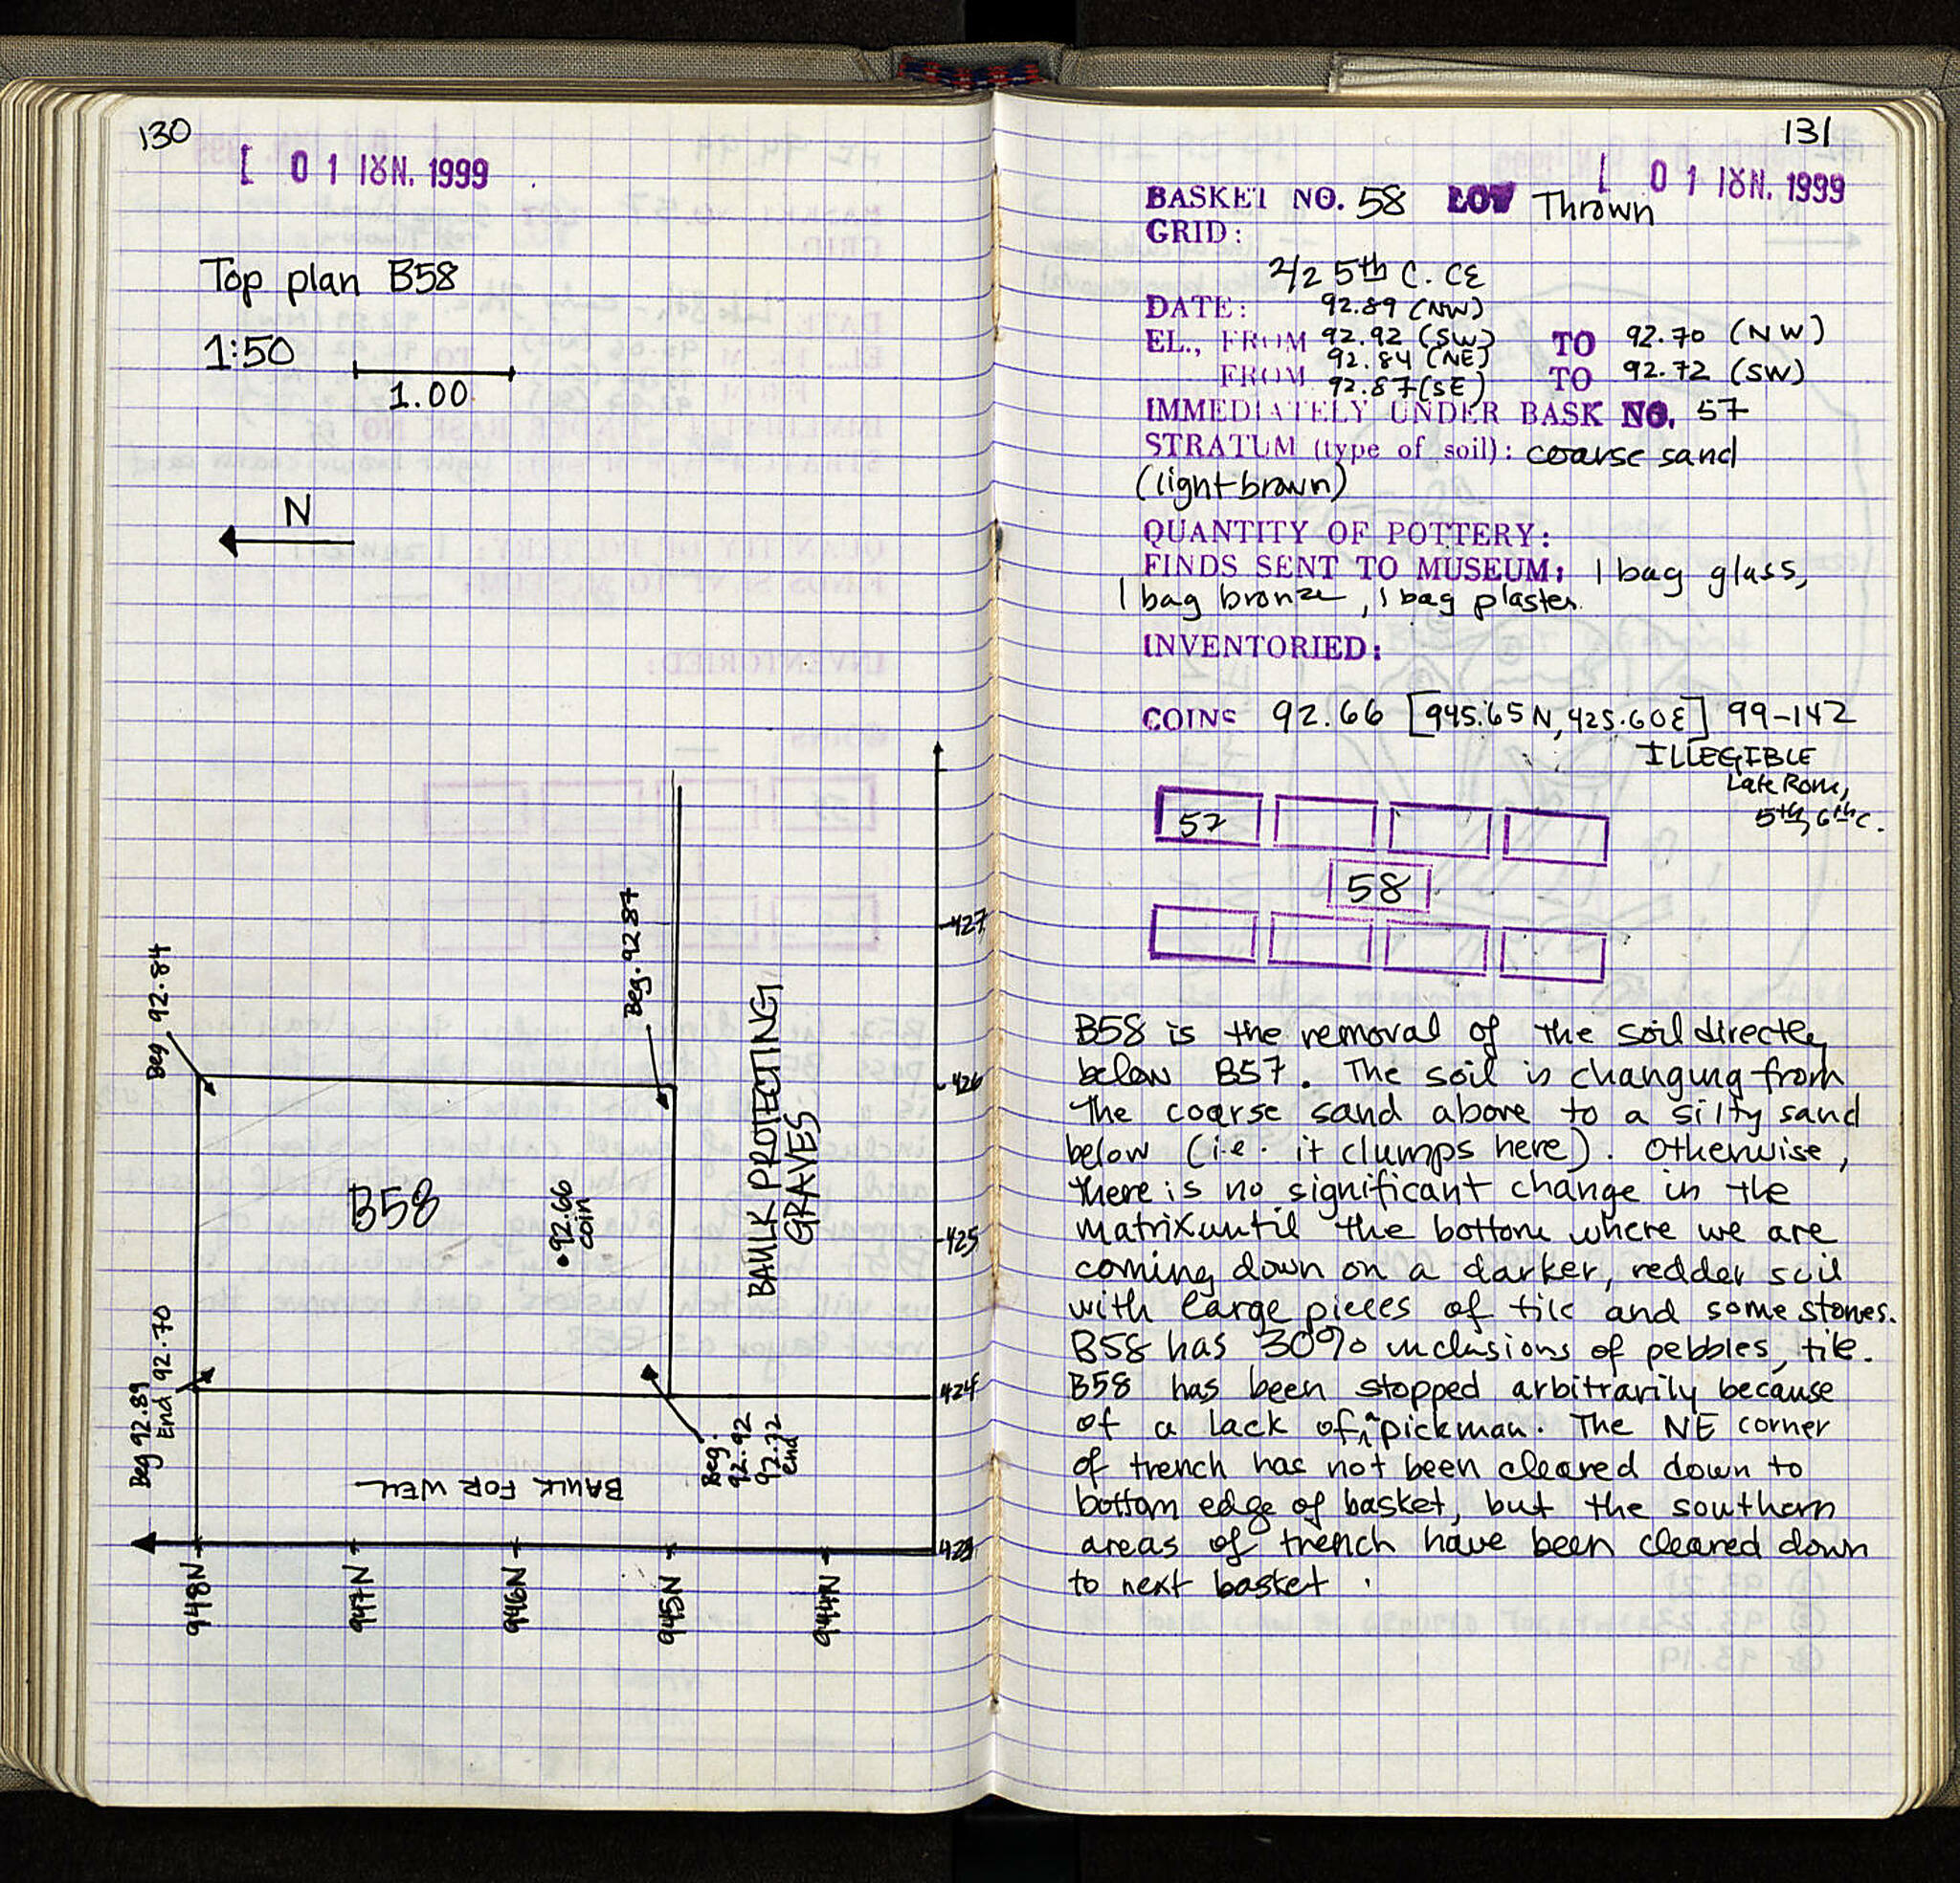 130
[ 01 ION. 1999
Top plan B58
1:50
1.00
N
Beg 92.84
Beg. 92 87
427
426
B58
•92.66
coin
BAULK PROTECTING
GRAVES
425
Beg 92.89
End 92.70
424
Beg.
92.92
92.72
end
BAULK FOR WELL
423
948N
947N
946N
945N
944N
131
[ 01 ION. 1999
BASKET NO. 58 LOT Thrown
GRID:
2/2 5th C. CE
DATE: 92.89 (NW)
EL., FROM 92.92 (SW) TO 92.70 (NW)
92.84 (NE)
FROM 92.87 (SE) TO 92.72 (SW)
IMMEDIATELY UNDER BASK NO. 57
STRATUM (type of soil): coarse sand
(light brown)
QUANTITY OF POTTERY:
FINDS SENT TO MUSEUM: 1 bag glass,
1 bag bronze, 1 bag plaster.
INVENTORIED:
COINS 92.66 [945.65N, 425.60E] 99-142
ILLEGIBLE
Late Rom,
5th, 6th c.
57
58
B58 is the removal of the soil directly
below B57. The soil is changing from
the coarse sand above to a silty sand
below (i.e. it clumps here). Otherwise,
there is no significant change in the
matrix until the bottom where we are
coming down on a darker, redder soil
with large pieces of tile and some stones.
B58 has 30% inclusions of pebbles, tile.
B58 has been stopped arbitrarily because
of a lack of a pickman. The NE corner
of trench has not been cleared down to
bottom edge of basket, but the southern
areas of trench have been cleared down
to next basket.